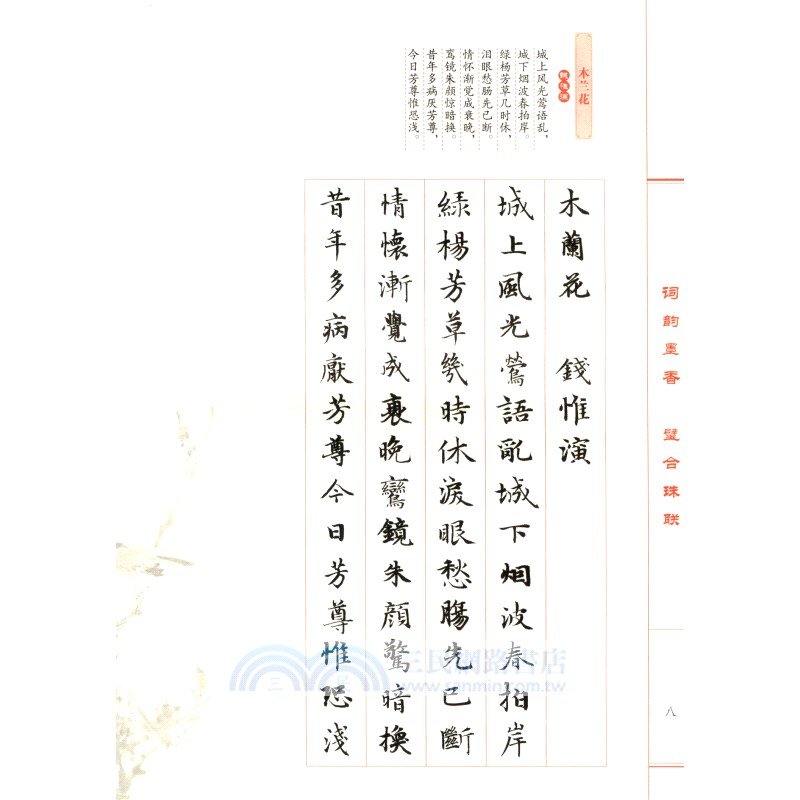 木兰花
钱惟演
城上风光莺语乱，
城下烟波春拍岸。
绿杨芳草几时休，
泪眼愁肠先已断。
情怀渐觉成衰晚，
鸾镜朱颜惊暗换。
昔年多病厌芳尊，
今日芳尊惟恐浅。
木蘭花 錢惟演
城上風光鶯語亂城下烟波春拍岸
綠楊芳草幾時休淚眼愁腸先已斷
情懷漸覺成衰晚鸞鏡朱顏驚暗換
昔年多病厭芳尊今日芳尊惟恐淺
词韵墨香 璧合珠联
八
三民網路書店
www.sanmin.com.tw
三民